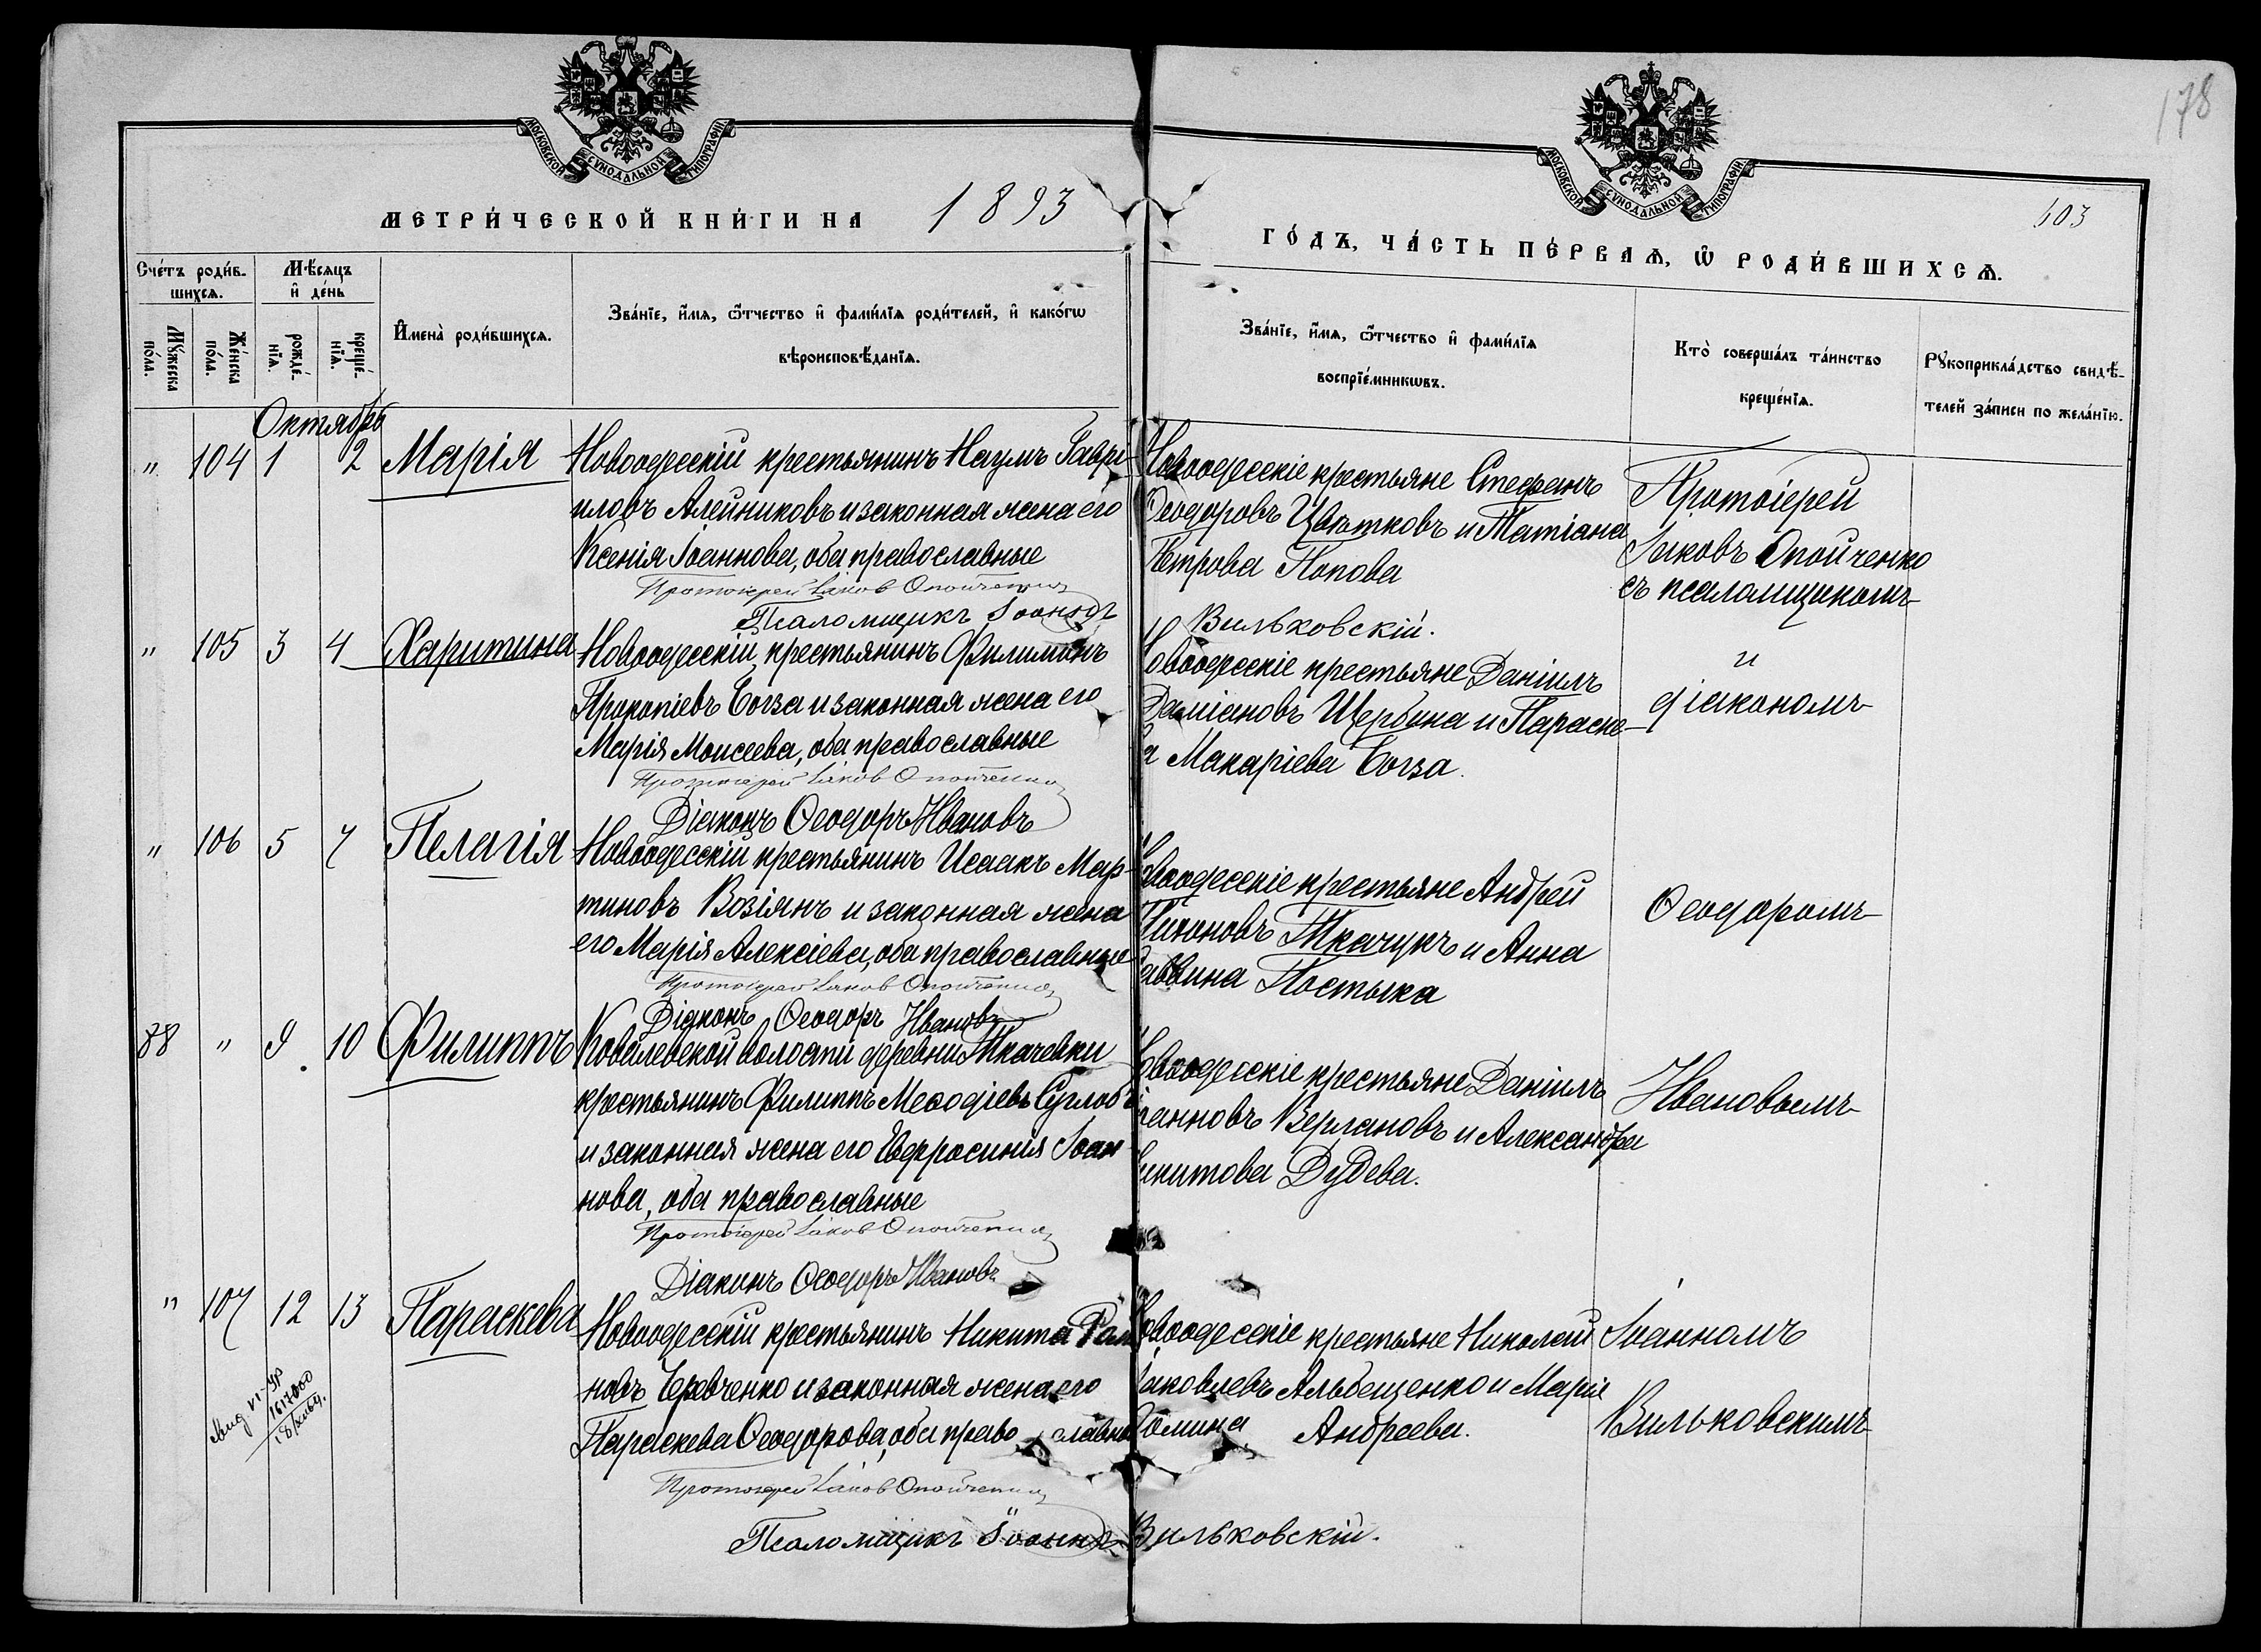 178
МОСКОВСКОЙ СѴНОДАЛЬНОЙ ТИПОГРАФІИ
МОСКОВСКОЙ СѴНОДАЛЬНОЙ ТИПОГРАФІИ
МЕТРИ́ЧЕСКОЙ КНИ́ГИ НА 1893
ГО́ДЪ, ЧА́СТЬ ПЕ́РВАѦ, Ѡ РОДИ́ВШИХСѦ.
603
Сче́тъ роди́в-
шихсѧ.
Мꙋ́жеска
по́ла.
Же́нска
по́ла.
Мѣ́сѧцъ
и де́нь
рожде́-
нїѧ.
креще́-
нїѧ.
Имена̀ роди́вшихсѧ.
Зва́нїе, и́мѧ, ѻ́тчество и фами́лїѧ роди́телей, и како́гѡ
вѣроисповѣ́данїѧ.
Зва́нїе, и́мѧ, ѻ́тчество и фами́лїѧ
воспрїе́мникѡвъ.
Кто̀ соверша́лъ та́инство
креще́нїѧ.
Рꙋкоприкла́дство свидѣ́-
телей за́писи по жела́нїю.
Октябрь
" 104 1 2 Марія
Новоодесскій крестьянинъ Наумъ Гаврі-
иловъ Алейниковъ и законная жена его
Ксенія Іоаннова, оба православные
Протоіерей Іаков Опойченко
Псаломщикъ Іоаннъ Вильховскій.
Новоодесскіе крестьяне Стефанъ
Ѳеодоровъ Цвѣтковъ и Татіана
Петрова Попова
Протоіерей
Іаковъ Опойченко
съ псаломщикомъ
" 105 3 4 Харитина
Новоодесскій крестьянинъ Филимонъ
Прокопіевъ Богза и законная жена его
Марія Моисеева, оба православные
Протоіерей Іаков Опойченко
Діаконъ Ѳеодоръ Ивановъ
Новоодесскіе крестьяне Даніилъ
Даміановъ Щербина и Параске-
ва Макаріева Богза.
и
діакономъ
" 106 5 7 Пелагія
Новоодесскій крестьянинъ Исаакъ Мар-
тиновъ Возіянъ и законная жена
его Марія Алексіева, оба православные
Протоіерей Іаков Опойченко
Діаконъ Ѳеодоръ Ивановъ
Новоодесскіе крестьяне Андрей
Тихоновъ Ткачукъ и Анна
Саввина Постыка
Ѳеодоромъ
88 " 9 10 Филиппъ
Ковалевской волости деревни Ткачевки
крестьянинъ Филиппъ Меѳодіевъ Суглобъ
и законная жена его Евфросинія Іоан-
нова, оба православные
Протоіерей Іаков Опойченко
Діаконъ Ѳеодоръ Ивановъ
Новоодесскіе крестьяне Даніилъ
Іоанновъ Верлановъ и Александра
Никитова Дудева.
Ивановымъ
" 107 12 13 Параскева
Новоодесскій крестьянинъ Никита Рома
новъ Черевченко и законная жена его
Параскева Ѳеодорова, оба православны
Протоіерей Іаков Опойченко
Псаломщикъ Іоаннъ Вильховскій.
Новоодесскіе крестьяне Николай
Іаковлевъ Альбещенко и Марія
Ѳомина Андреева.
Іоанномъ
Вильковскимъ